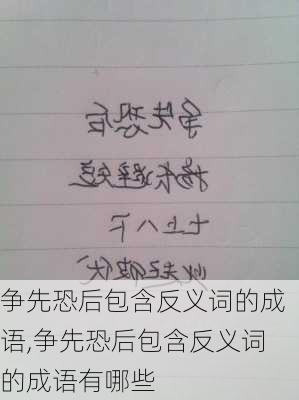 争先恐后
扬长避短
七上八下
此起彼伏
争先恐后包含反义词的成
语,争先恐后包含反义词
的成语有哪些